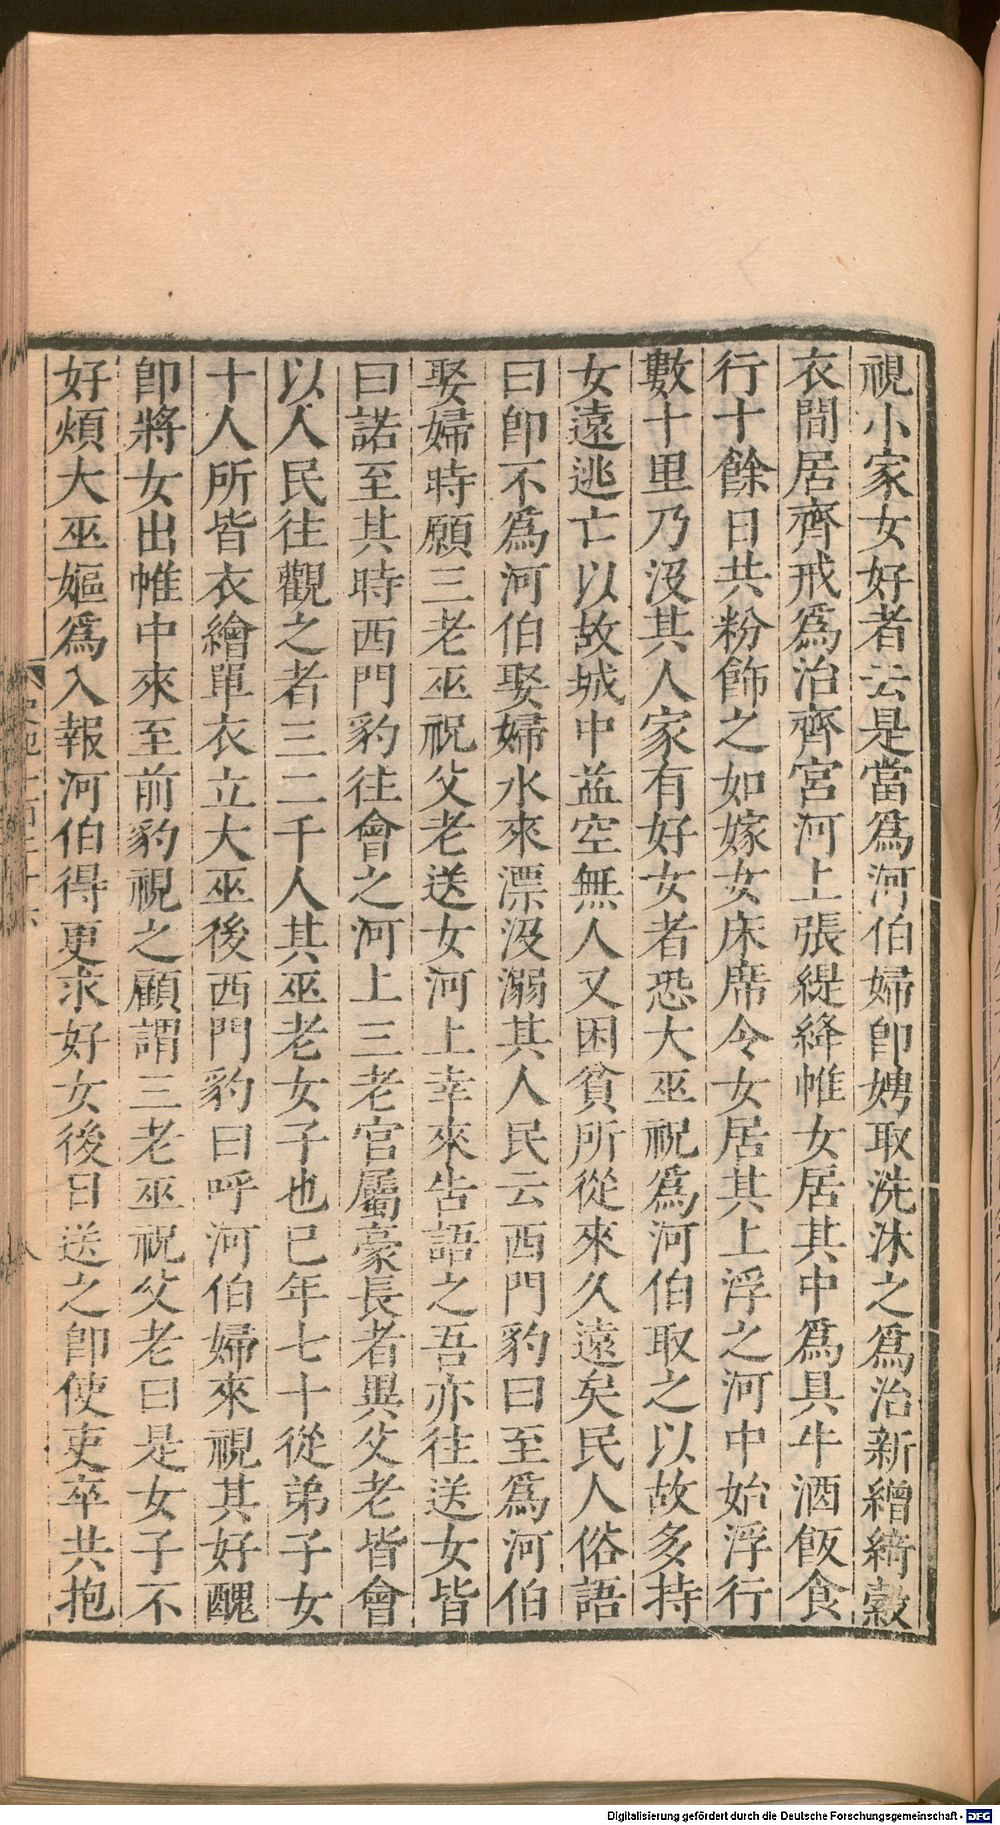 視小家女好者云是當爲河伯婦卽娉取洗沐之爲治新繒綺縠
衣間居齊戒爲治齊宮河上張緹絳帷女居其中爲具牛酒飯食
行十餘日共粉飾之如嫁女床席令女居其上浮之河中始浮行
數十里乃沒其人家有好女者恐大巫祝爲河伯取之以故多持
女遠逃亡以故城中益空無人又困貧所從來久遠矣民人俗語
曰卽不爲河伯娶婦水來漂沒溺其人民云西門豹曰至爲河伯
娶婦時願三老巫祝父老送女河上幸來告語之吾亦往送女皆
曰諾至其時西門豹往會之河上三老官屬豪長者里父老皆會
以人民往觀之者三二千人其巫老女子也已年七十從弟子女
十人所皆衣繒單衣立大巫後西門豹曰呼河伯婦來視其好醜
卽將女出帷中來至前豹視之顧謂三老巫祝父老曰是女子不
好煩大巫嫗爲入報河伯得更求好女後日送之卽使吏卒共抱
八
Digitalisierung gefördert durch die Deutsche Forschungsgemeinschaft - DFG